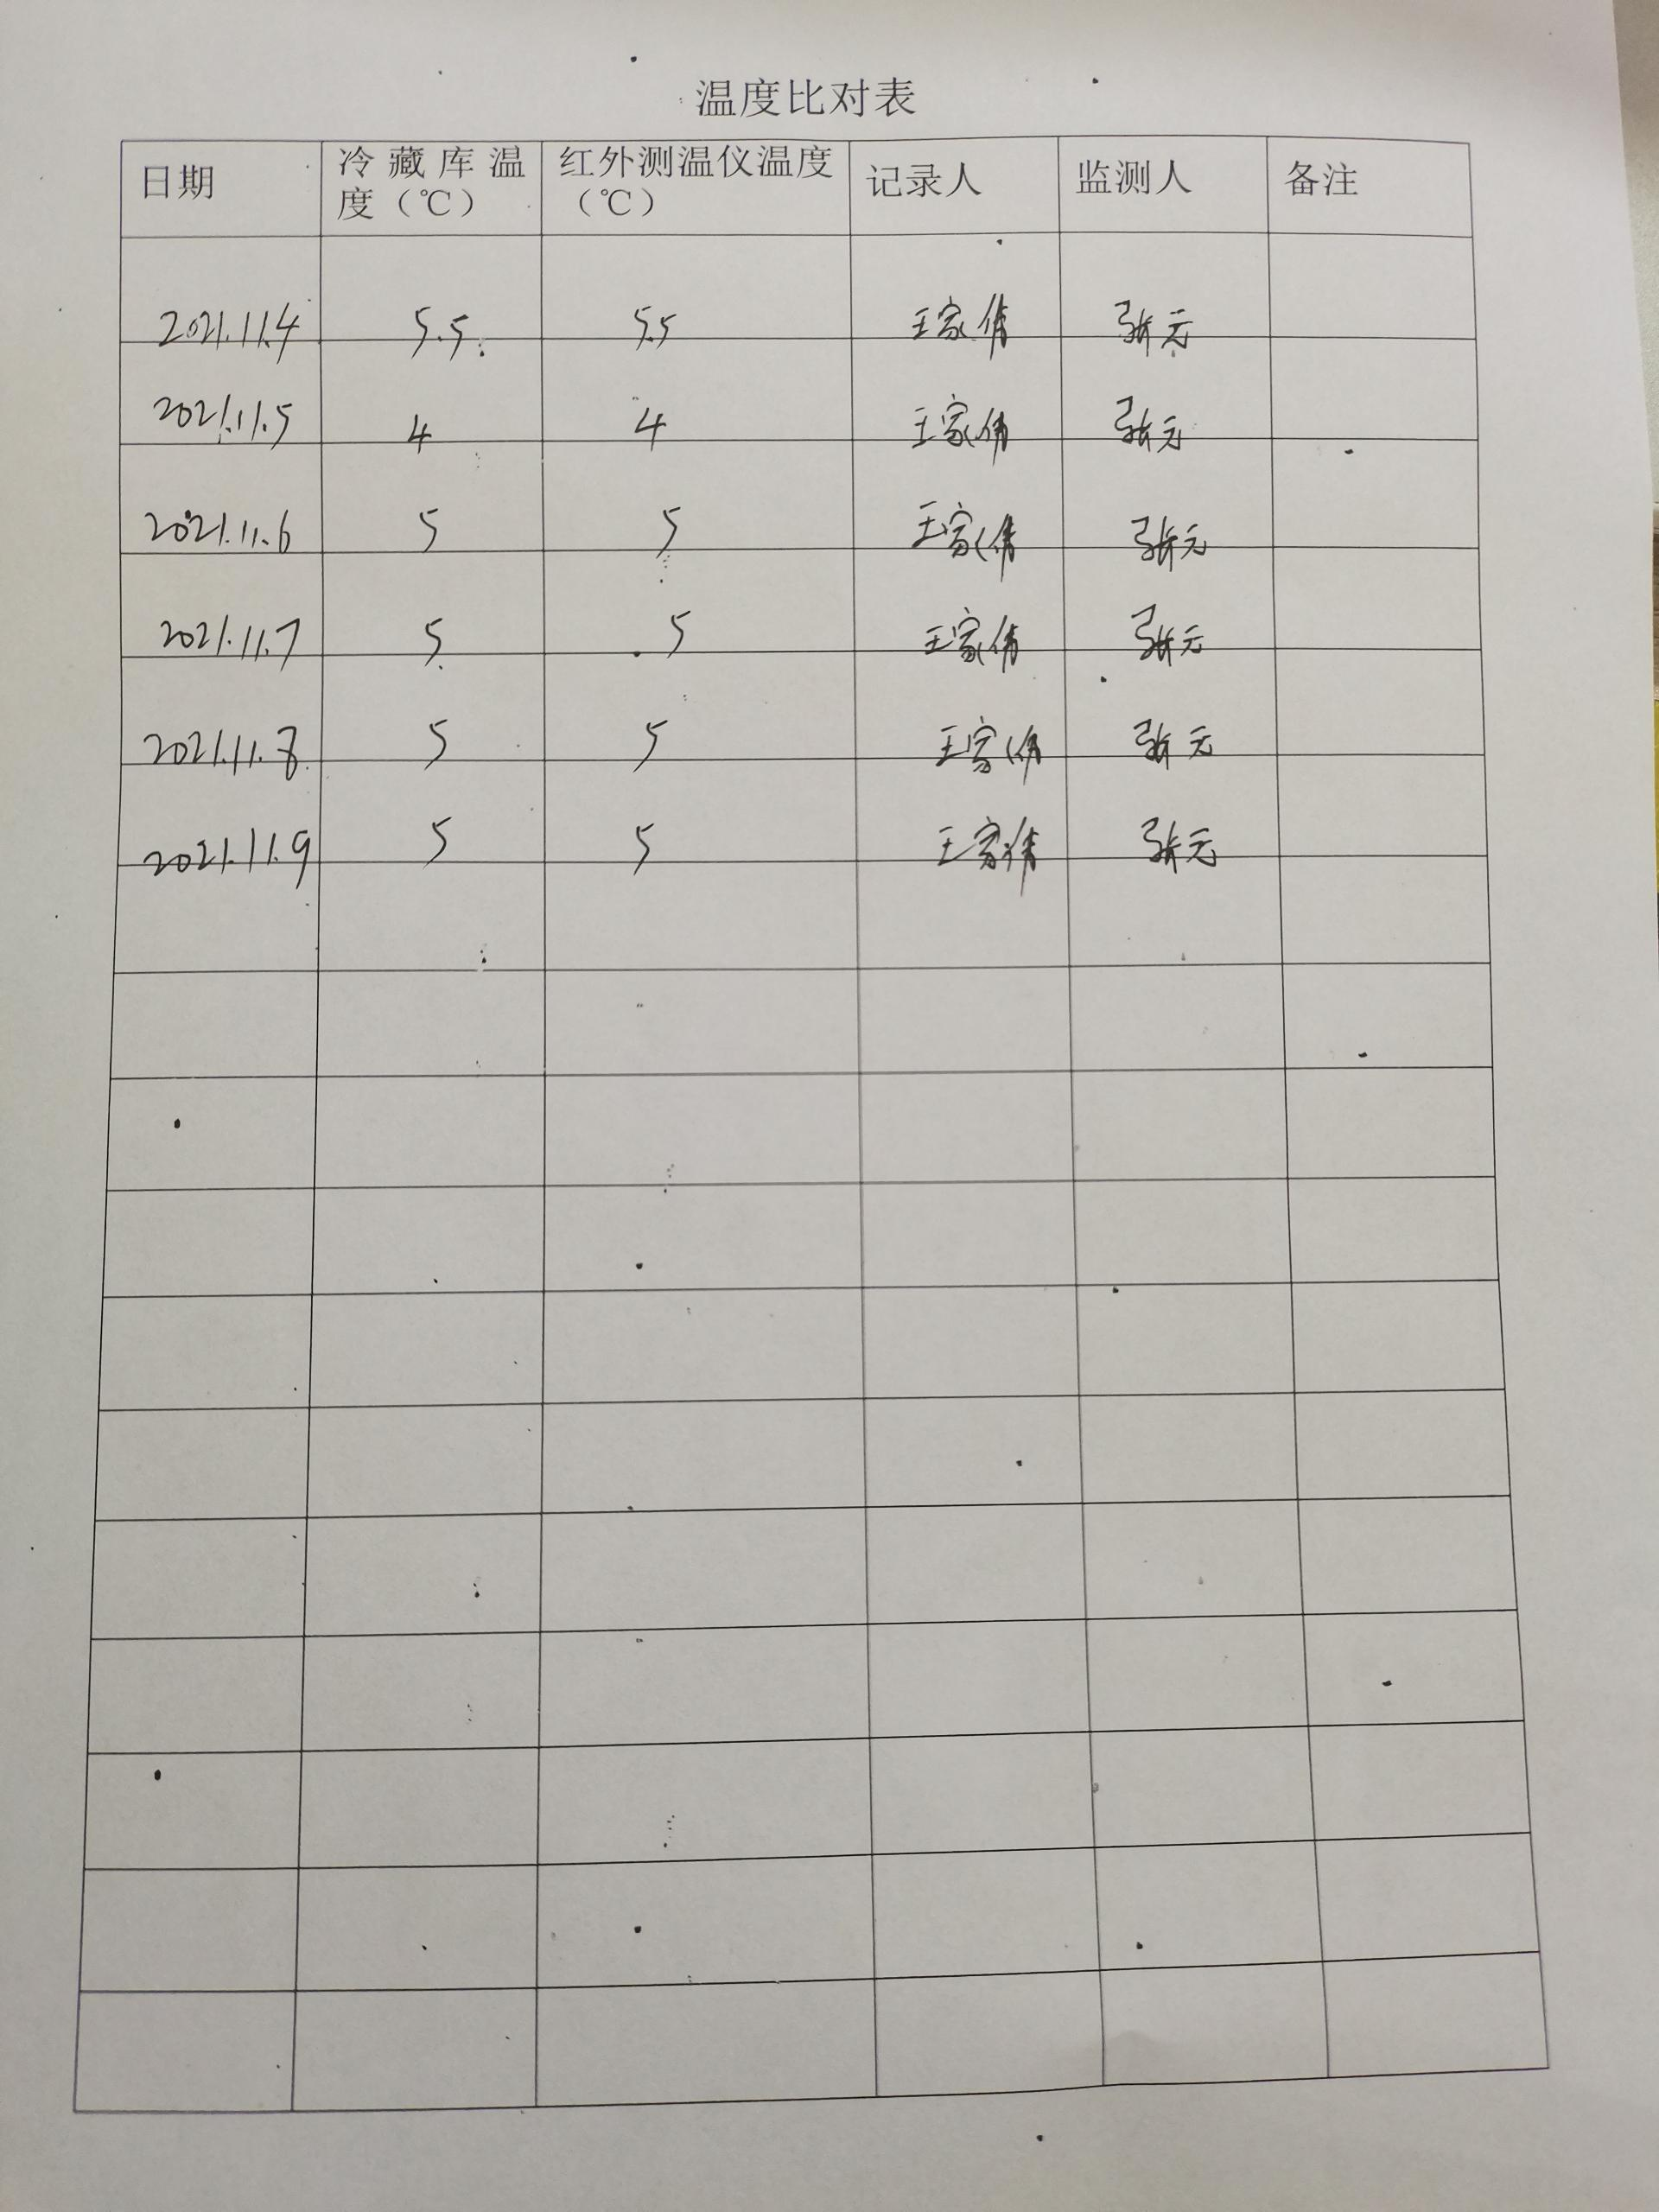 温度比对表
日期 冷藏库温度（℃） 红外测温仪温度（℃） 记录人 监测人 备注
2021.11.4 5.5 5.5 王家倩 张元
2021.11.5 4 4 王家倩 张元
2021.11.6 5 5 王家倩 张元
2021.11.7 5 5 王家倩 张元
2021.11.8 5 5 王家倩 张元
2021.11.9 5 5 王家倩 张元